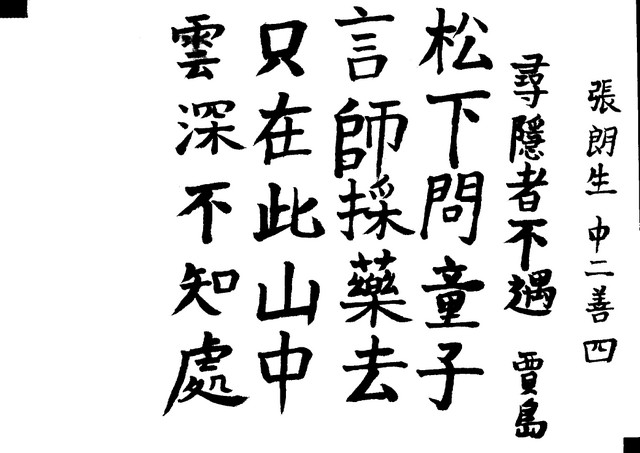 張朗生 中二善四
尋隱者不遇 賈島
松下問童子
言師採藥去
只在此山中
雲深不知處